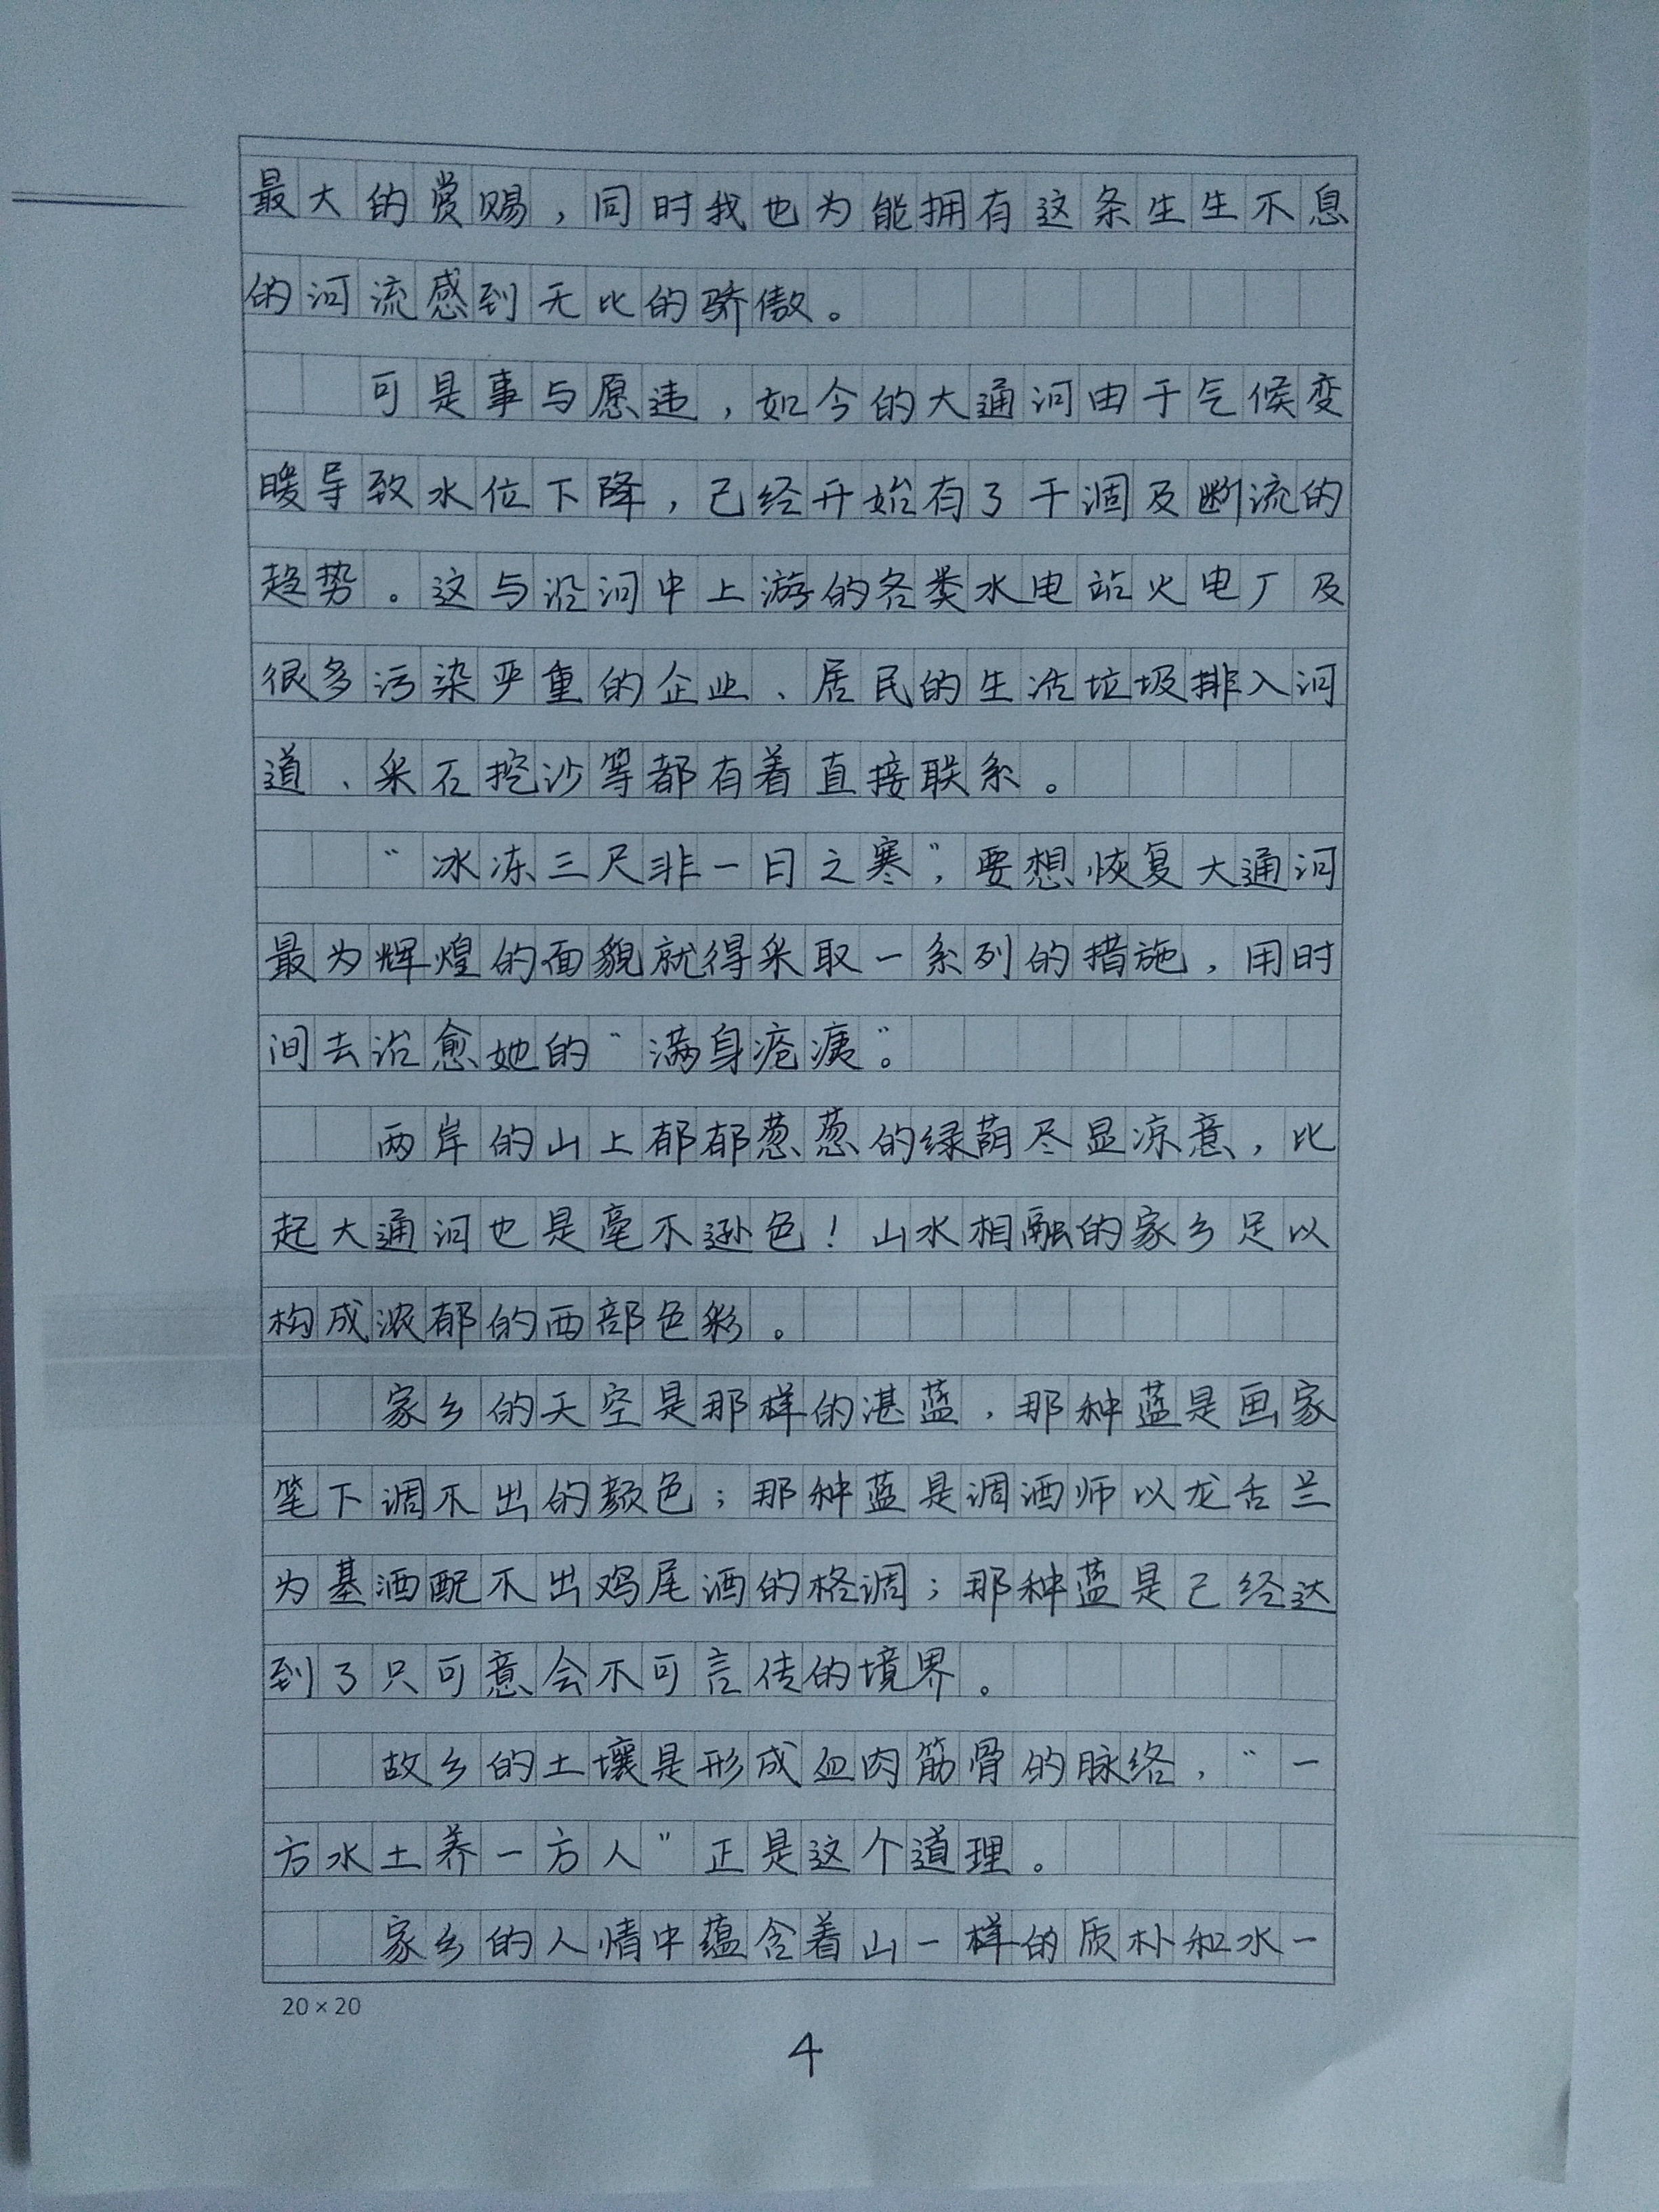 最大的赏赐，同时我也为能拥有这条生生不息
的河流感到无比的骄傲。
可是事与愿违，如今的大通河由于气候变
暖导致水位下降，已经开始有了干涸及断流的
趋势。这与沿河中上游的各类水电站火电厂及
很多污染严重的企业、居民的生活垃圾排入河
道、采石挖沙等都有着直接联系。
“冰冻三尺非一日之寒”，要想恢复大通河
最为辉煌的面貌就得采取一系列的措施，用时
间去治愈她的“满身疮痍”。
两岸的山上郁郁葱葱的绿荫尽显凉意，比
起大通河也是毫不逊色！山水相融的家乡足以
构成浓郁的西部色彩。
家乡的天空是那样的湛蓝，那种蓝是画家
笔下调不出的颜色；那种蓝是调酒师以龙舌兰
为基酒配不出鸡尾酒的格调；那种蓝是已经达
到了只可意会不可言传的境界。
故乡的土壤是形成血肉筋骨的脉络，“一
方水土养一方人”正是这个道理。
家乡的人情中蕴含着山一样的质朴和水一
20×20
4